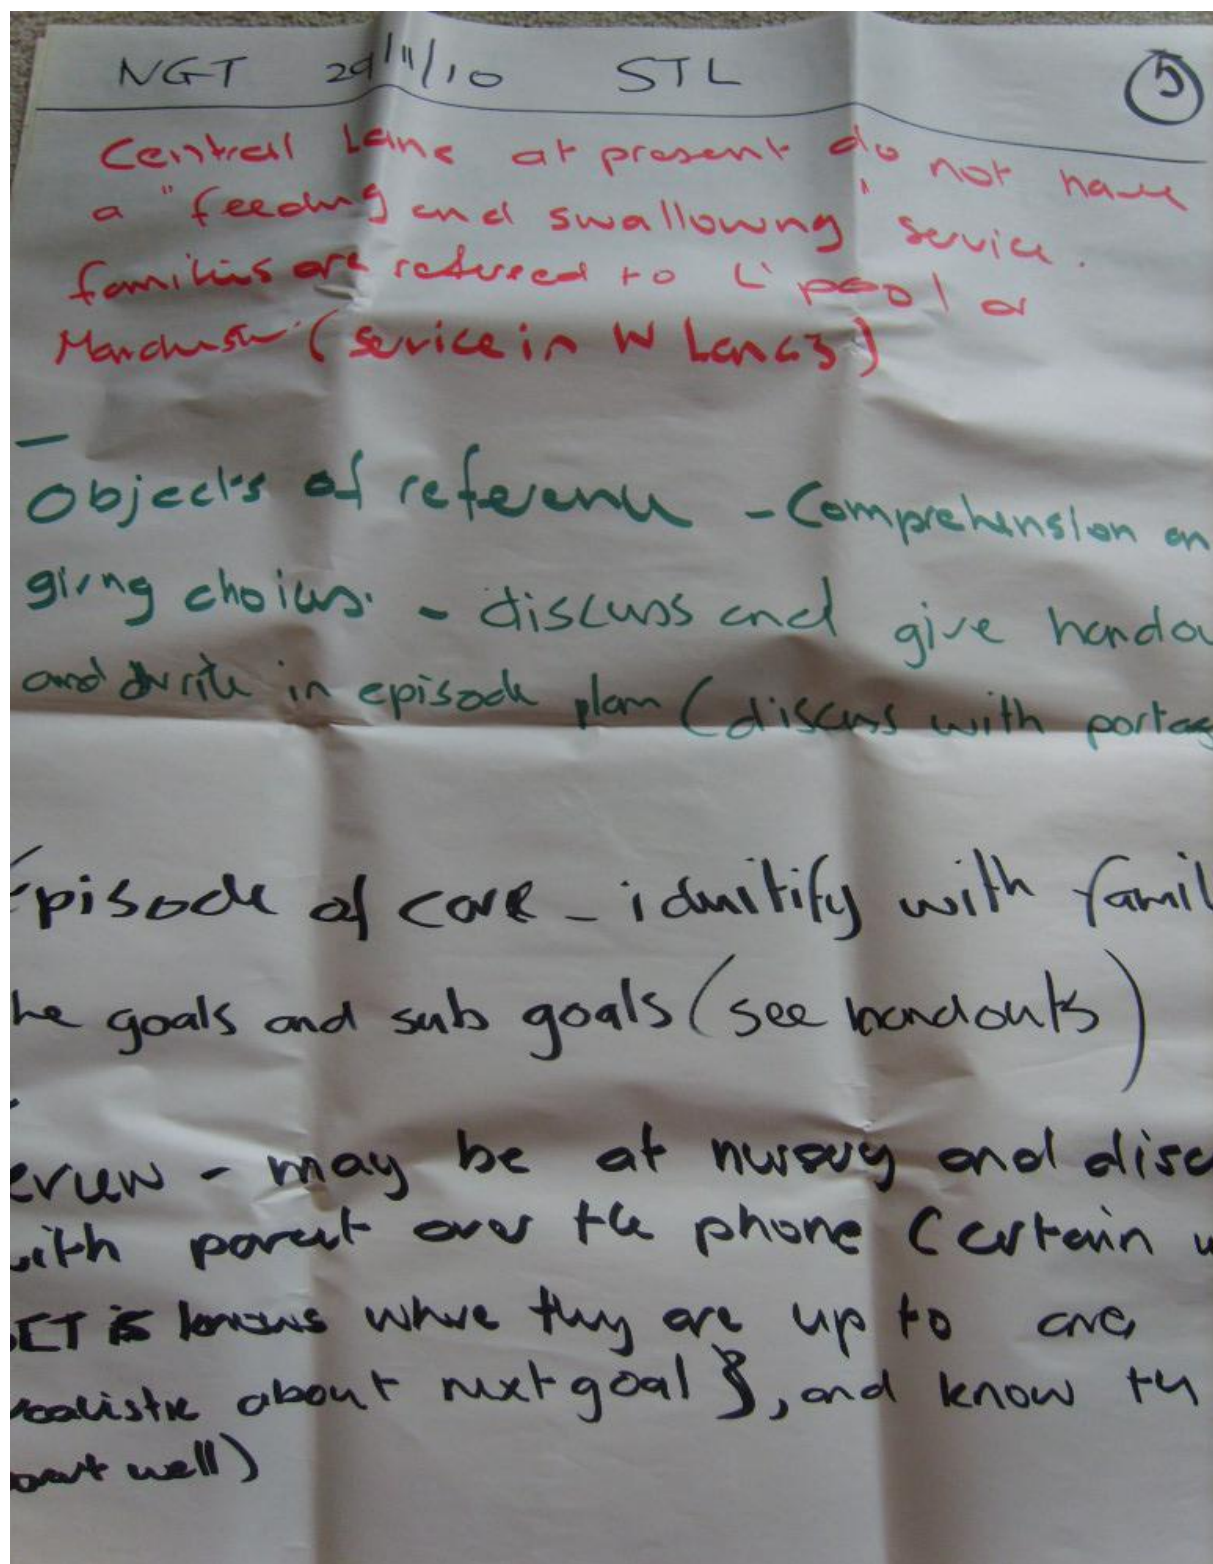 NGT 29/11/10 STL 5
Central Lancs at present do not have
a "feeding and swallowing" service.
families are referred to L'pool or
Manchester (service in W Lancs)
Objects of reference - Comprehension an
giving choices. - discuss and give handou
and write in episode plan (discuss with portag
Episode of care - identify with famil
he goals and sub goals (see handouts)
eview - may be at nursery and disc
with parent over the phone (certain
is knows where they are up to are
realistic about next goal }, and know th
well)